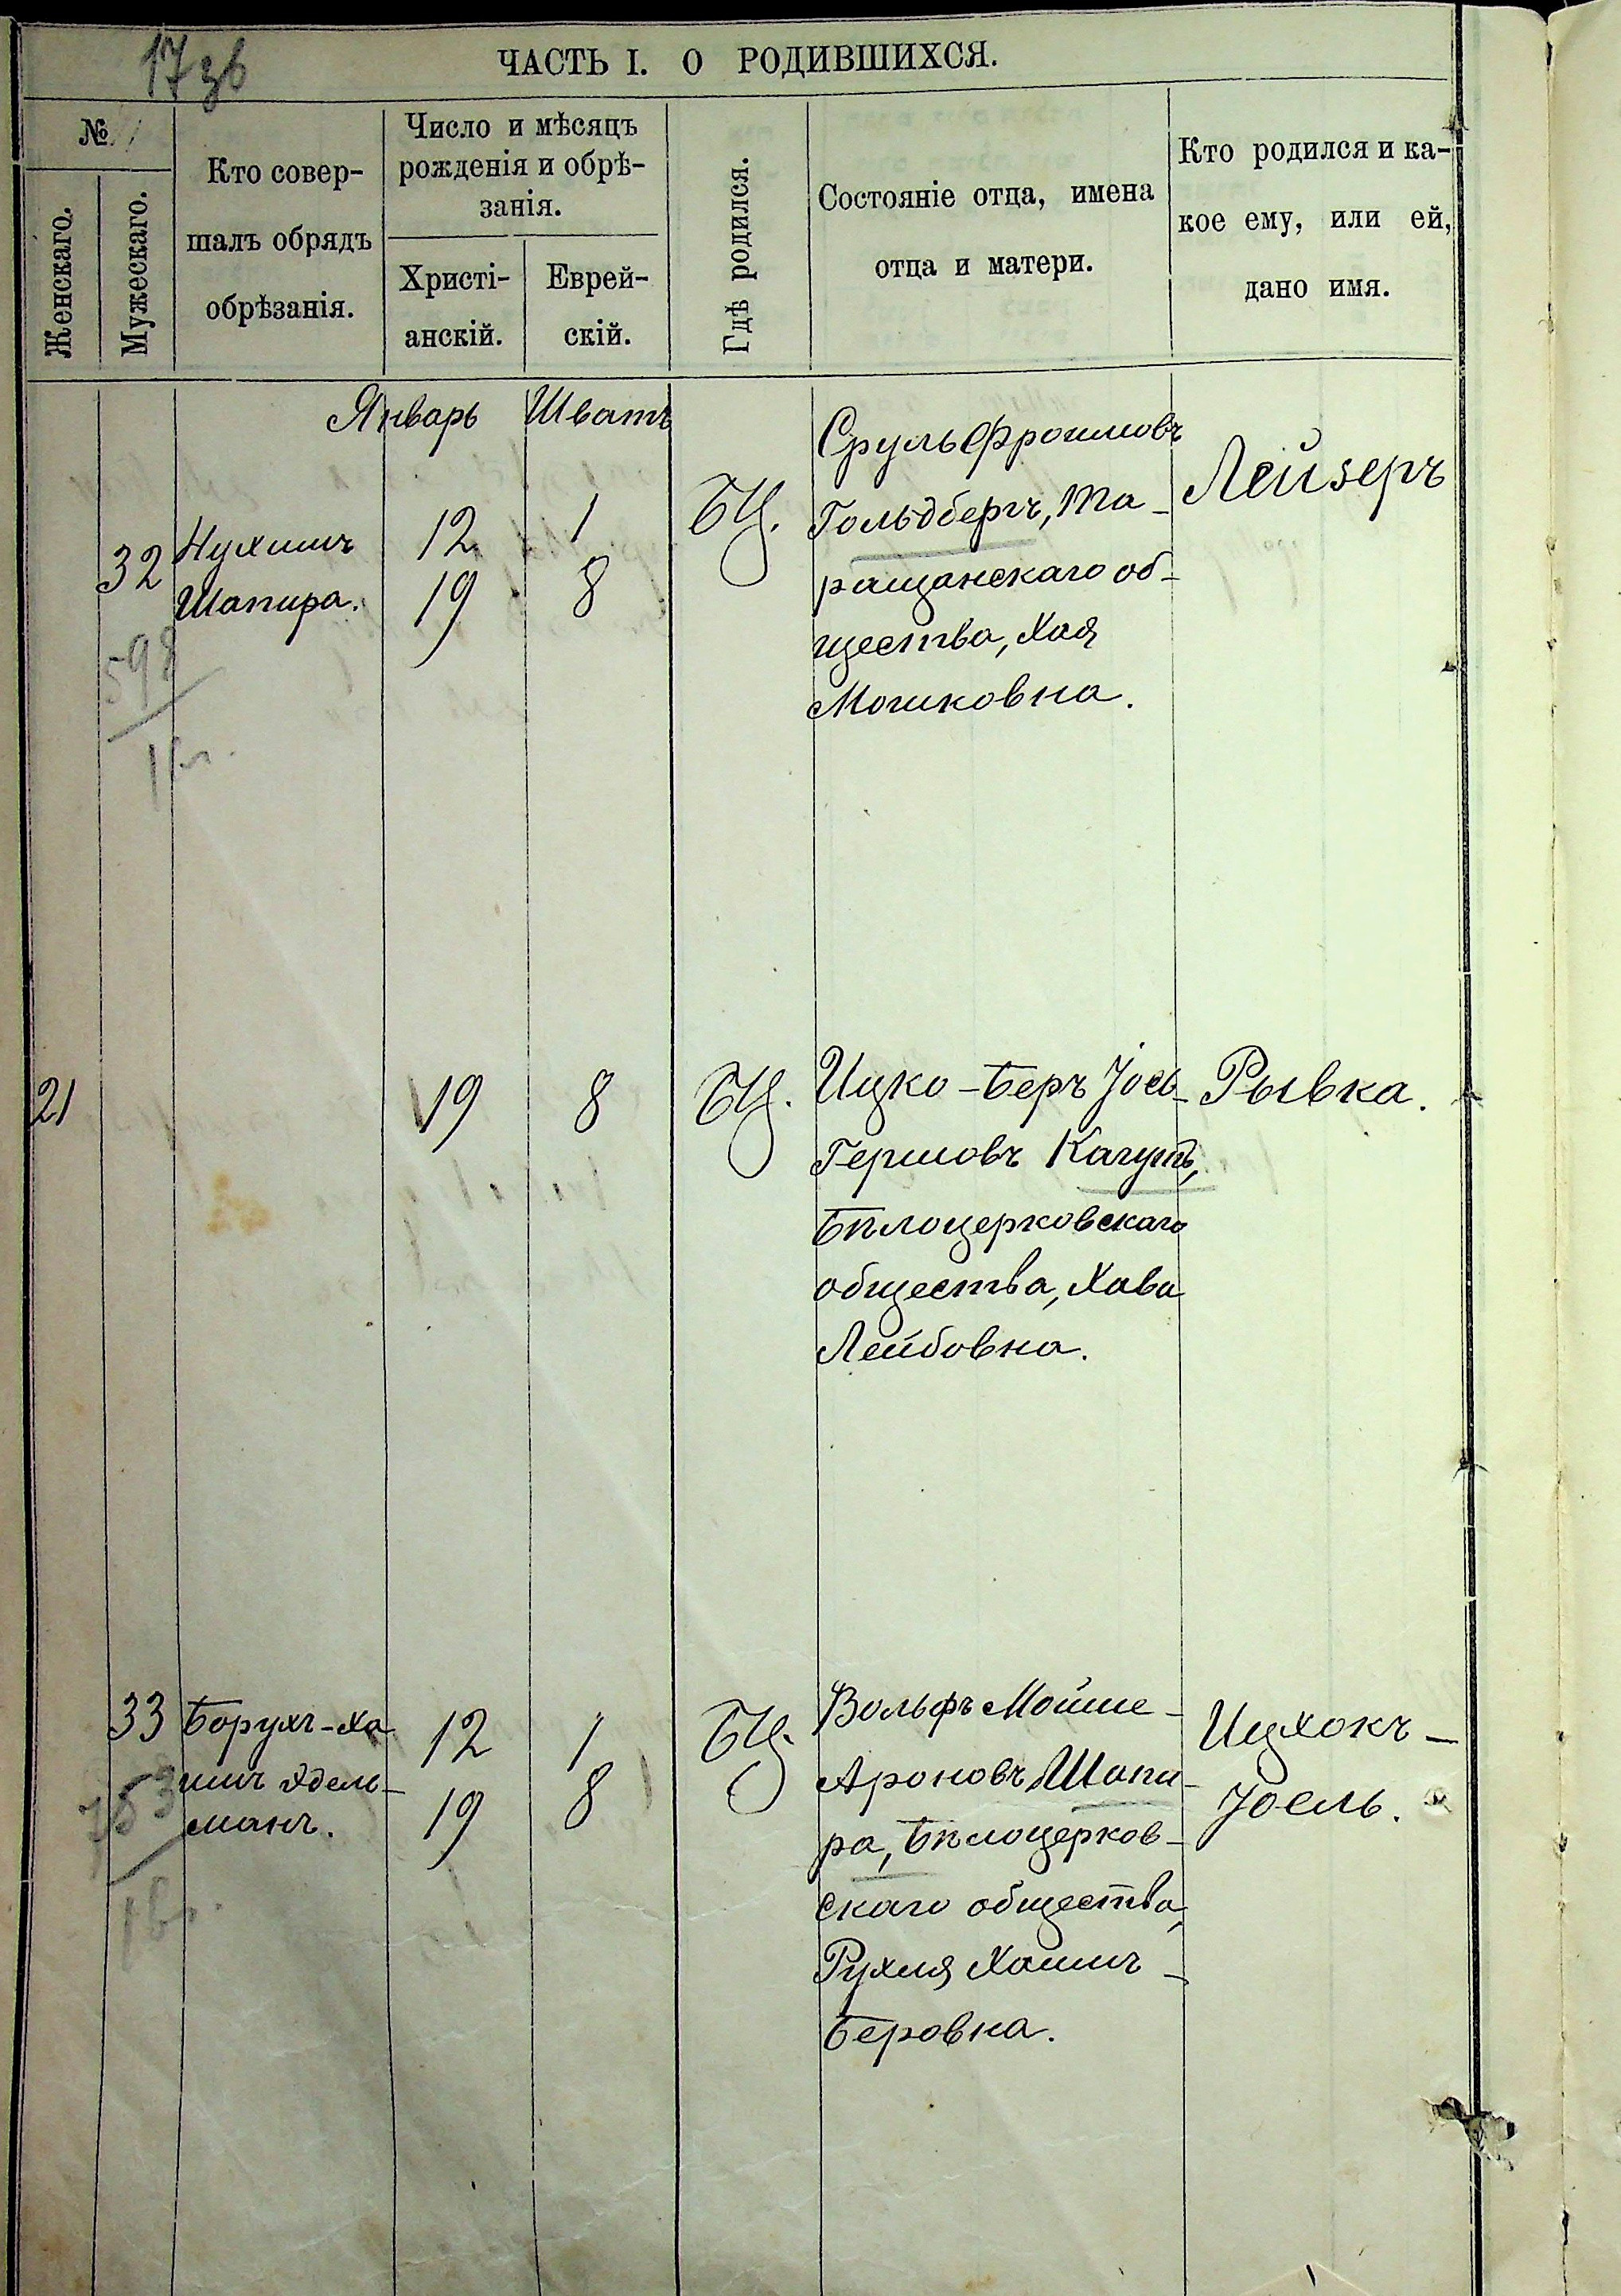 17 зв
ЧАСТЬ I. О РОДИВШИХСЯ.
№
Женскаго.
Мужескаго.
Кто совер-
шалъ обрядъ
обрѣзанія.
Число и мѣсяцъ
рожденія и обрѣ-
занія.
Христі-
анскій.
Еврей-
скій.
Гдѣ родился.
Состояніе отца, имена
отца и матери.
Кто родился и ка-
кое ему, или ей,
дано имя.
Январь Шватъ
32
Нухимъ
Шапира.
12
19
1
8
БЦ.
Сруль Фроимовъ
Гольдбергъ, Та-
ращанскаго об-
щества, Хая
Мошковна.
Лейзеръ
598
21
19
8
БЦ.
Ицко-Беръ Іось-
Гершовъ Кагутъ,
Бѣлоцерковскаго
общества, Хава
Лейбовна.
Рывка.
33
Борухъ-Ха
имъ Эдель-
манъ.
12
19
1
8
БЦ.
Вольфъ Мойше-
Ароновъ Шапи-
ра, Бѣлоцерков-
скаго общества,
Рухля Хаимъ-
Беровна.
Ицхокъ-
Іоель.